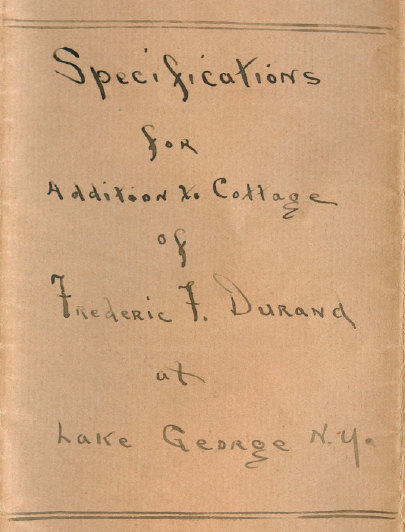 Specifications
for
Addition to Cottage
of
Frederic F. Durand
at
Lake George N.Y.